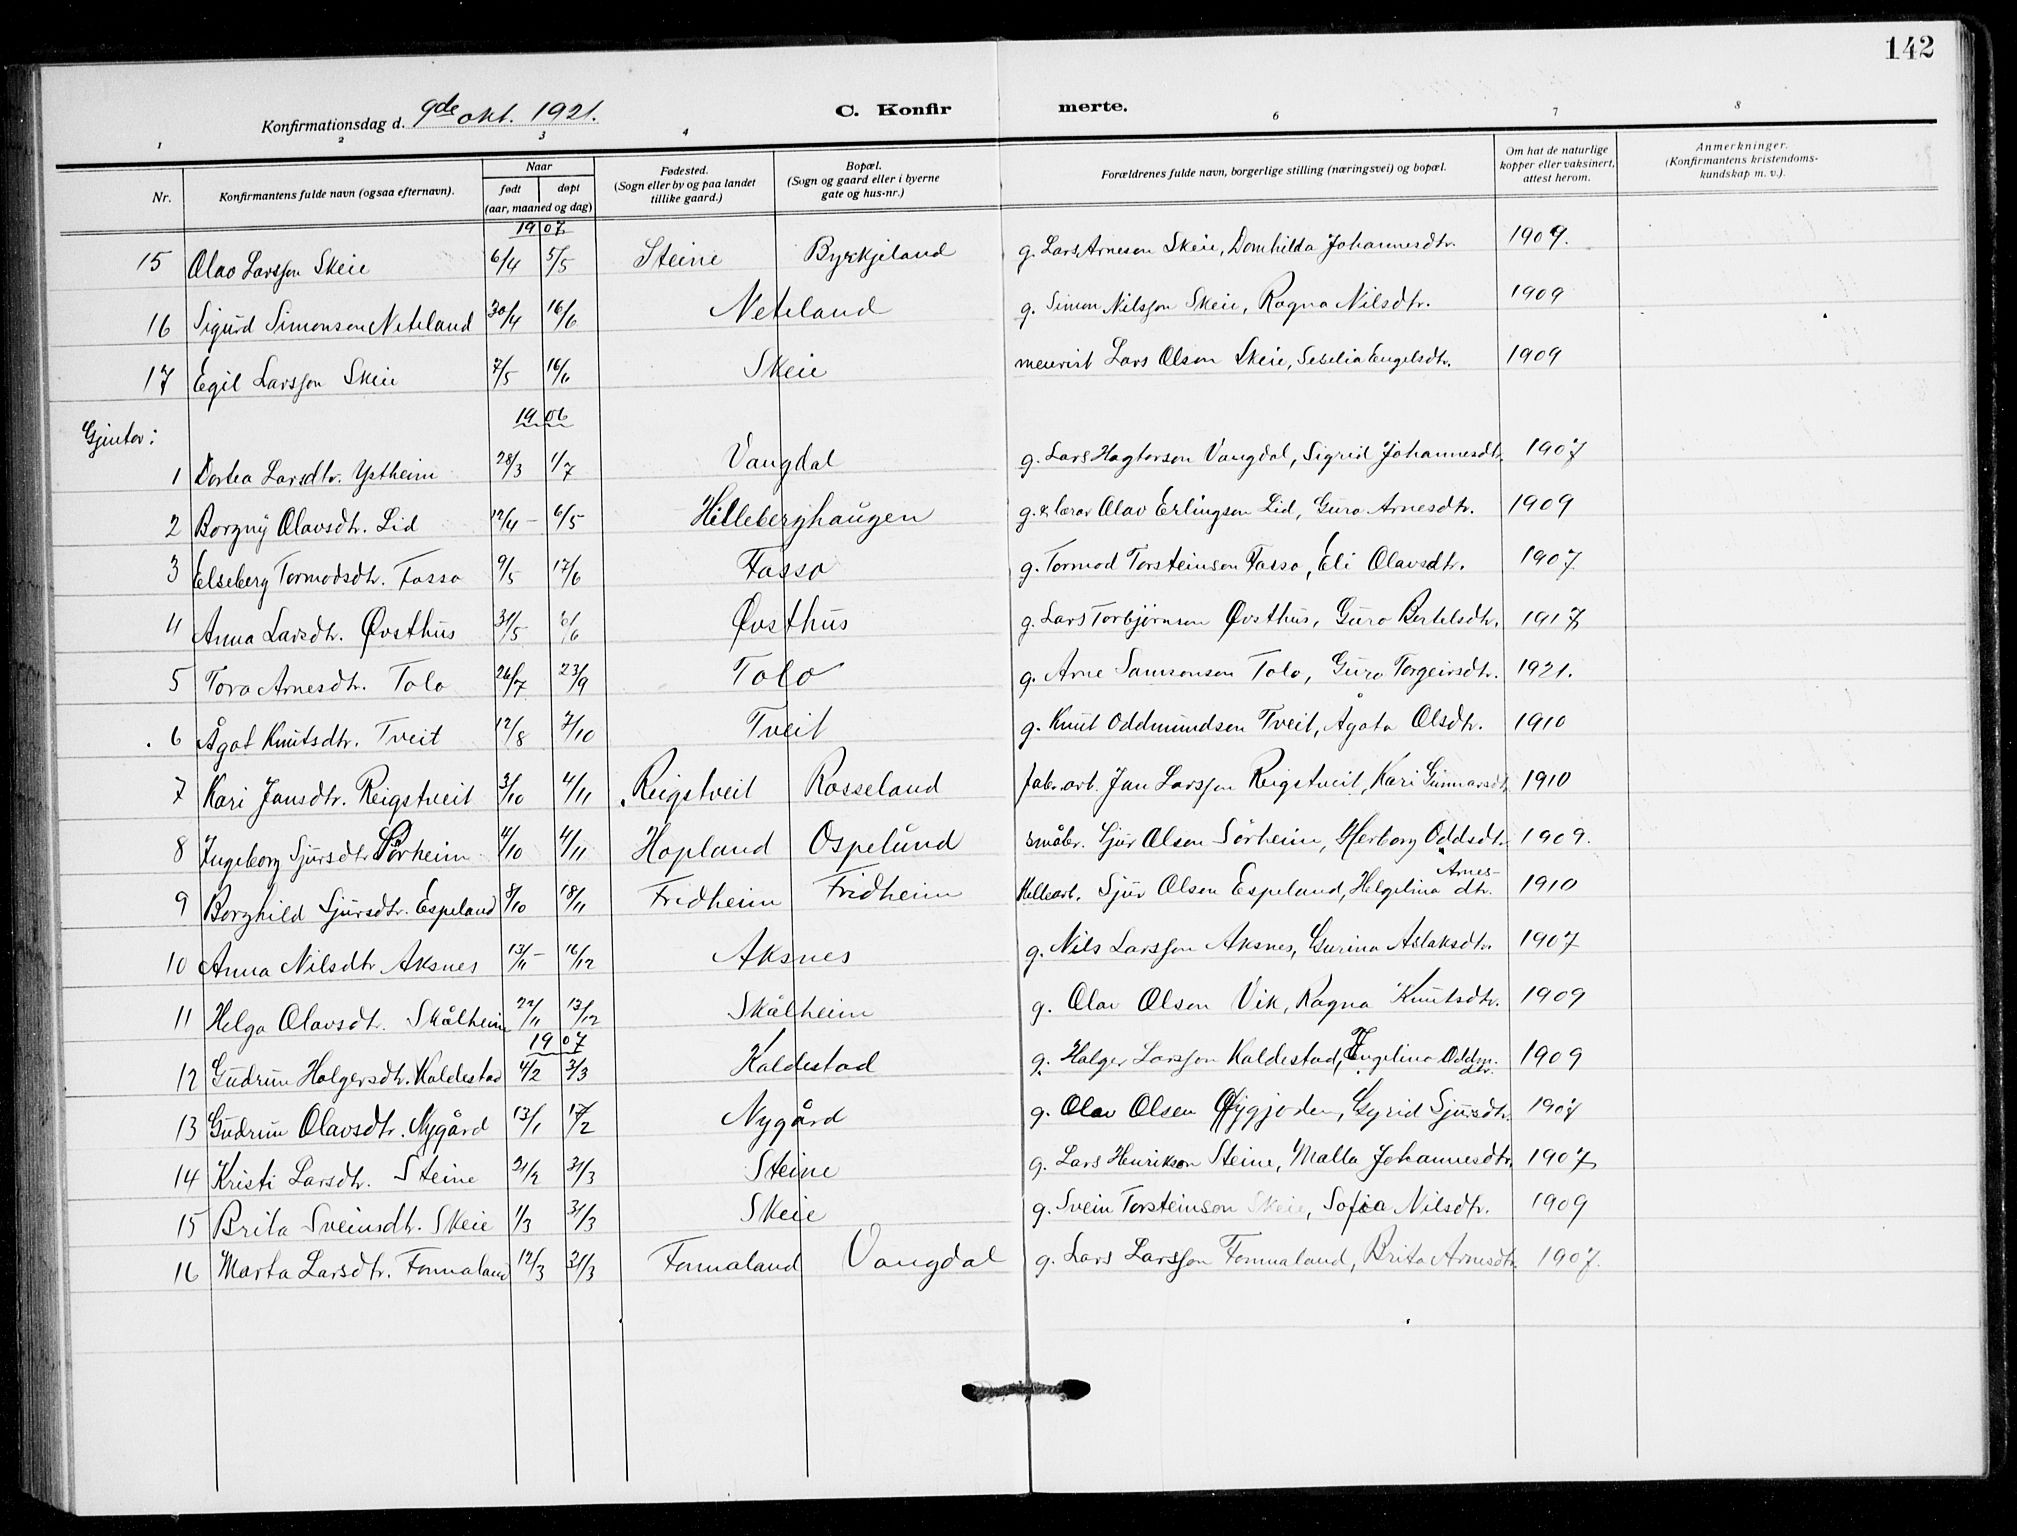 142
Konfirmationsdag d. 9de okt. 1921.
C. Konfir merte.
1 2 3 4 6 7 8
Nr.
Konfirmantens fulde navn (ogsaa efternavn).
Naar
født døpt
(aar, maaned og dag)
Fødested.
(Sogn eller by og paa landet
tillike gaard.)
Bopæl.
(Sogn og gaard eller i byerne
gate og hus-nr.)
Forældrenes fulde navn, borgerlige stilling (næringsvei) og bopæl.
Om hat de naturlige
kopper eller vaksinert,
attest herom.
Anmerkninger.
(Konfirmantens kristendoms-
kundskap m. v.).
1907
15 Olav Larsson Skeie 6/4 5/5 Steine Byrkjeland g. Lars Arneson Skeie, Domhilda Johannesdtr. 1909.
16 Sigurd Simonson Neteland 30/4 16/6 Neteland g. Simon Nilsson Skeie, Ragna Nilsdtr. 1909
17 Egil Larsson Skeie 7/5 16/6 Skeie meierist Lars Olson Skeie, Sebelia Engelsdtr. 1909
1906
Gjentor:
1 Dortea Larsdtr. Ystheim 28/3 1/7 Vangdal g. Lars Hagtorson Vangdal, Sigrid Johannesdtr. 1907
2 Borgny Olavsdtr. Lid 12/4 - 6/5 Hilleberghaugen g. & lærar Olav Erlingson Lid, Guro Arnesdtr. 1909
3 Elseberg Tormodsdtr. Fosso 9/5 17/6 Fosso g. Tormod Torsteinson Fosso, Eli Olavsdtr. 1907
4 Anna Larsdtr. Øvsthus 31/5 /6 Øvsthus g. Lars Torbjørnson Øvsthus, Guro Bertelsdtr. 1917
5 Tora Arnesdtr. Tolo 26/7 23/9 Tolo g. Arne Samsonson Tolo, Guro Torgeirsdtr. 1921.
6 Ågot Knutsdtr. Tveit 12/8 7/10 Tveit g. Knut Oddmundson Tveit, Ågota Olsdtr. 1910
7 Kari Jansdtr. Reigstveit 3/10 4/11 Reigstveit Rosseland fabr.arb. Jan Larsson Reigstveit, Kari Gunnarsdtr. 1910
8 Ingeborg Sjursdtr. Sørheim 4/10 4/11 Hopland Ospelund småbr. Sjur Olson Sørheim, Herborg Oddsdtr. 1909.
9 Borghild Sjursdtr. Espeland 8/10 18/11 Fridheim Fridheim Helleart. Sjur Olsen Espeland, Helgelina Arnes- dtr. 1910
10 Anna Nilsdtr Aksnes 13/11 - 16/12 Aksnes g. Nils Larsson Aksnes, Gurina Aslaksdtr. 1907
11 Helga Olavsdtr. Skålheim 22/11 13/12 Skålheim g. Olav Olson Vik, Ragna Knutsdtr. 1909
1907
12 Gudrun Holgersdtr. Kaldestad 4/2 3/3 Kaldestad g. Holger Larsson Kaldestad, Engelina Oddm. dtr. 1909
13 Gudrun Olavsdtr. Nygård 13/1 17/2 Nygård g. Olav Olsen Øygjorden, Gyrid Sjursdtr. 1907
14 Kristi Larsdtr. Steine 21/2 31/3 Steine g. Lars Henrikson Steine, Malla Johannesdtr. 1907
15 Brita Sveinsdtr. Skeie 1/3 31/3 Skeie g. Svein Torsteinson Skeie, Sofia Nilsdtr. 1909
16 Marta Larsdtr. Fonnaland 12/3 31/3 Fonnaland Vangdal g. Lars Larsson Fonnaland, Brita Arnesdtr. 1907.